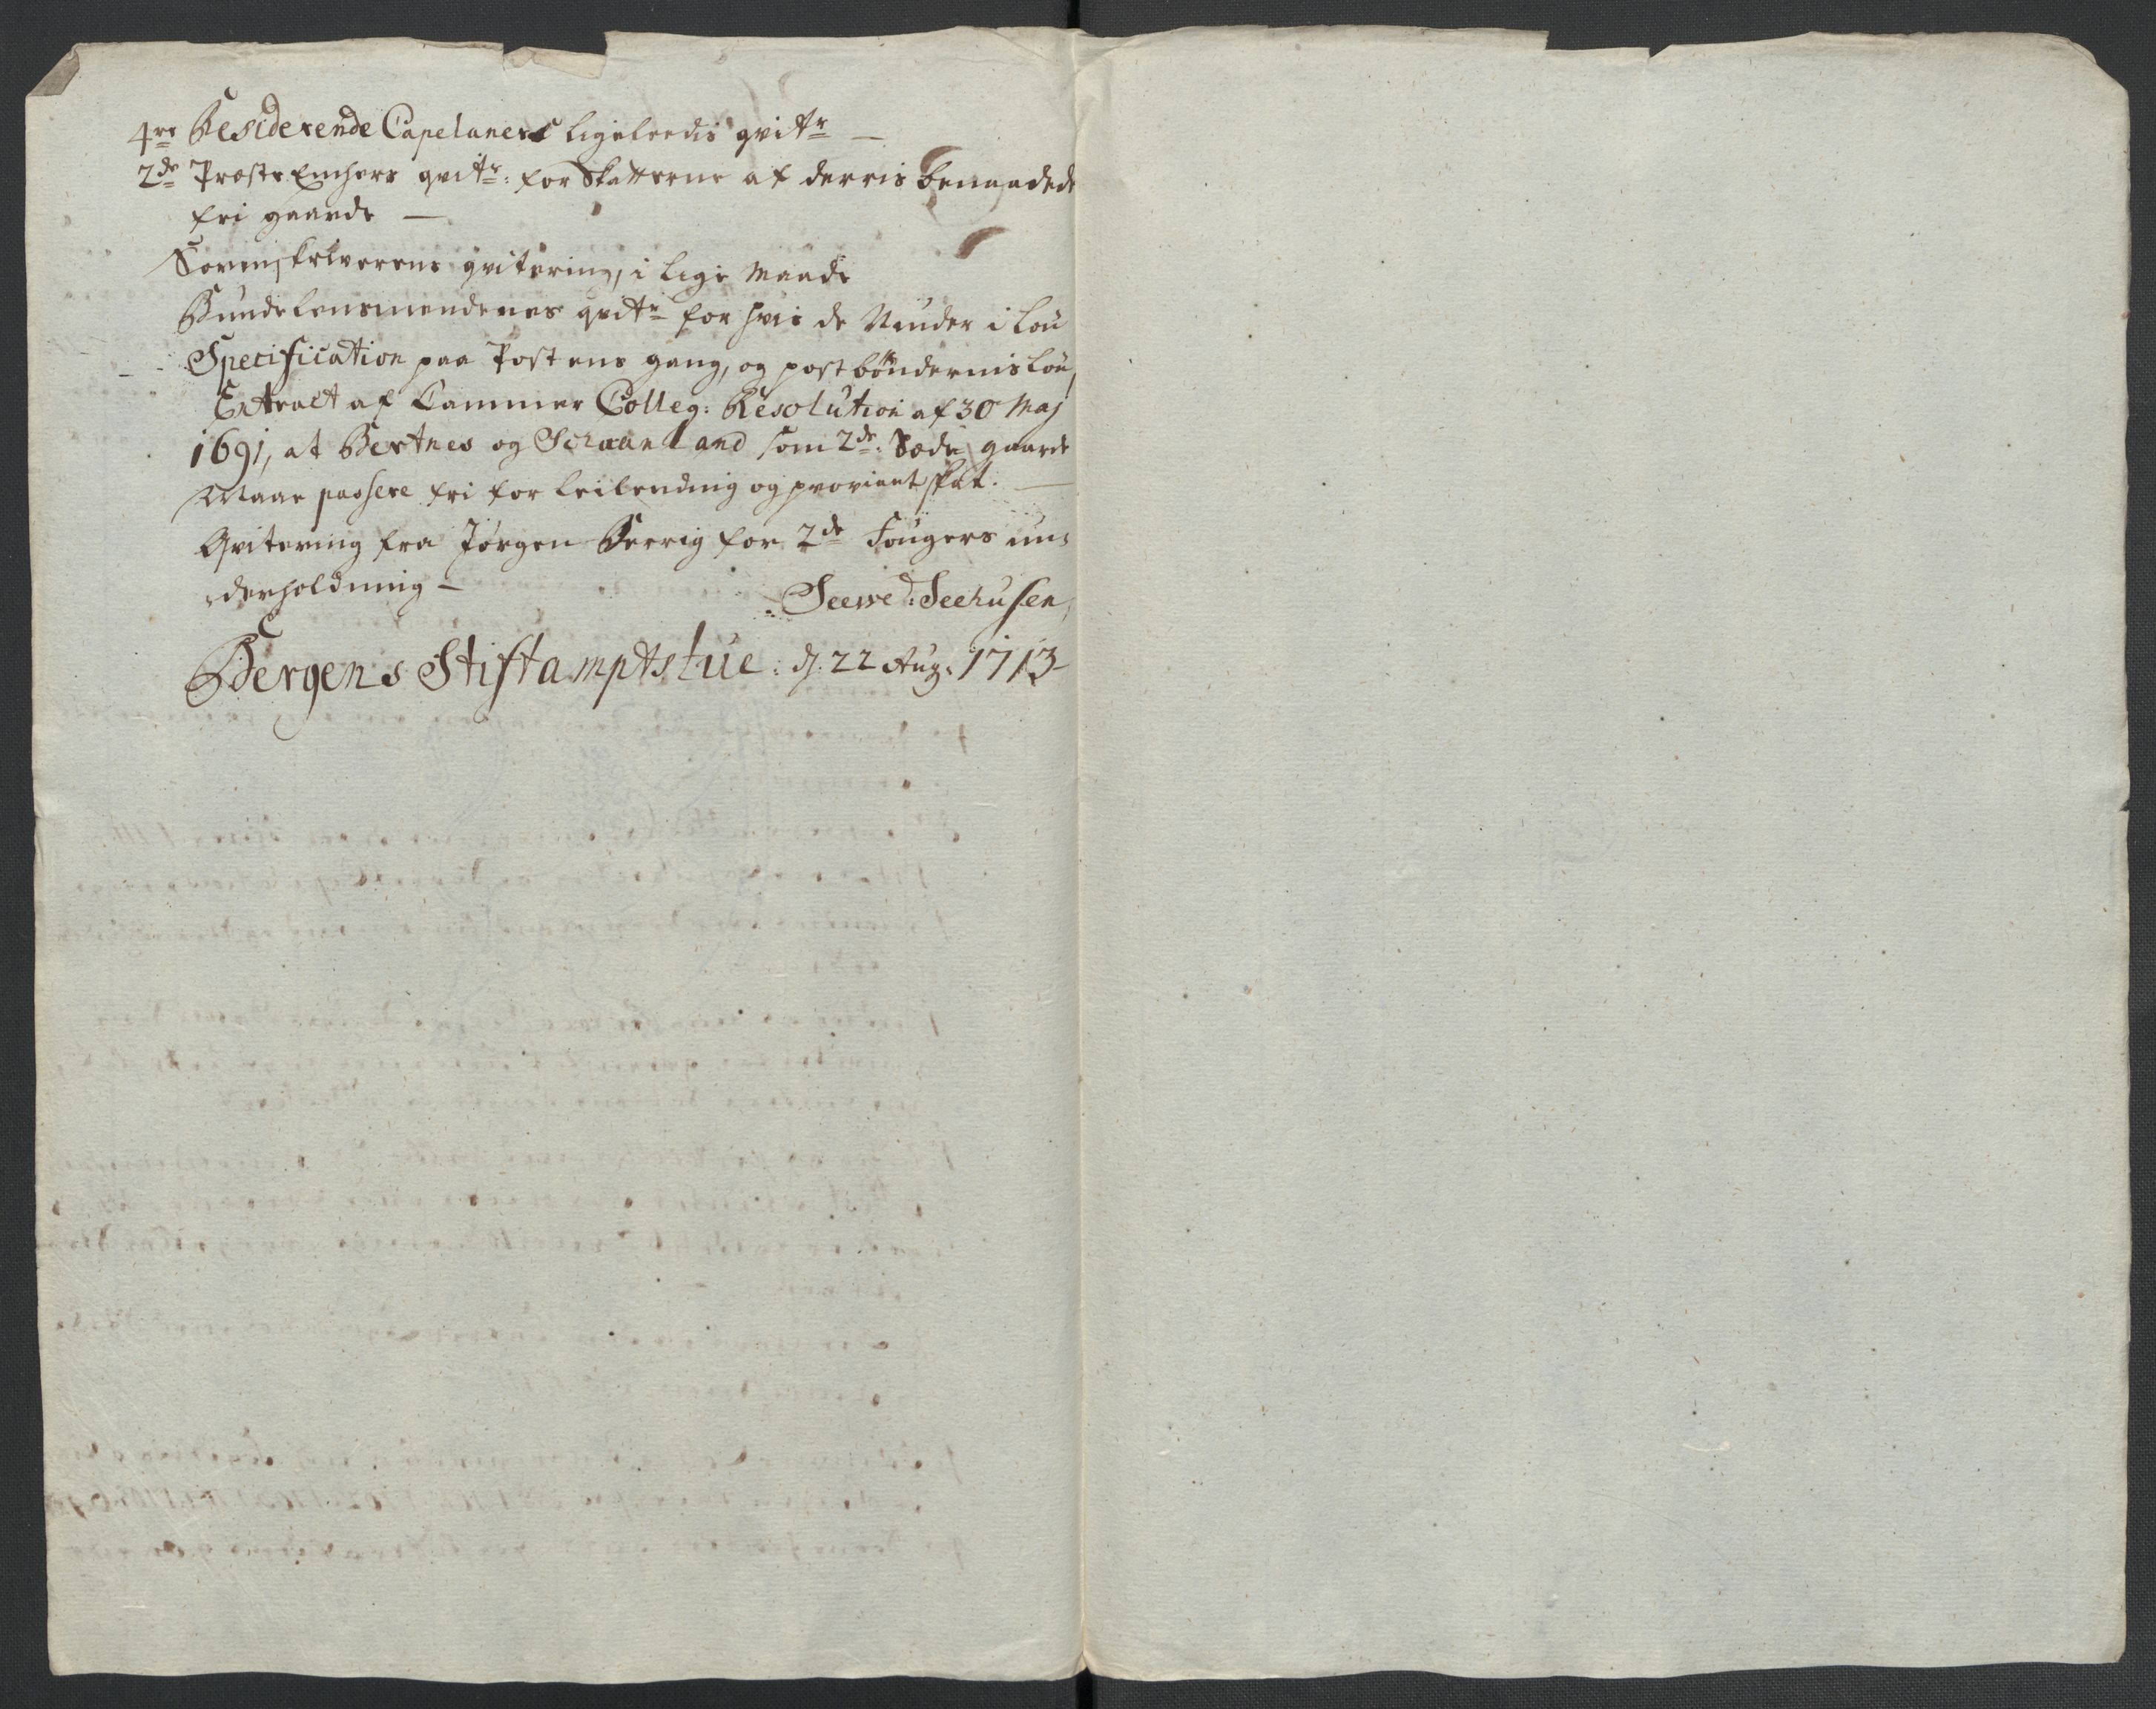 4re Residerende Capelaners ligeleedis qvittr
2de Præste Enchers qvittr: for Skatterne af derris benaadede
fri gaarde
Sorenskriverens qvitering, i lige Maade
Bundelensmendenes qvittr for hvis de Niuder i Løn
Specification paa Postens gang, og postbøndernis Løn,
Extract af Cammer Colleg: Resolution af 30 Maj
1691, at Bertnes og Schaanland som 2de: Sæde gaarde
Maae passere fri for Leilending og proviantskat.
Qvitering fra Jørgen for 2de Fougers un:
derholdning
Seehusen
Bergens Stiftamptstue: d: 22 Aug: 1713